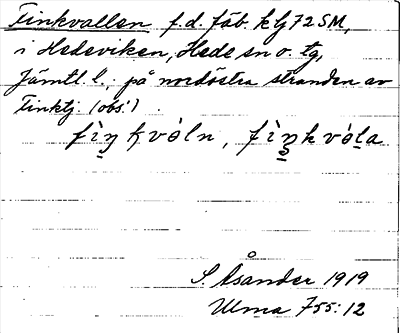 Finkvallen f.d. fäb. klg 72 SM,
i Hedeviken, Hede sn o. tg,
Jämtl. l., på nordöstra stranden av
Finktj. (obs!)
fìŋkvóln, fìŋkvóla
S. Åsander 1919
Ulma 755:12